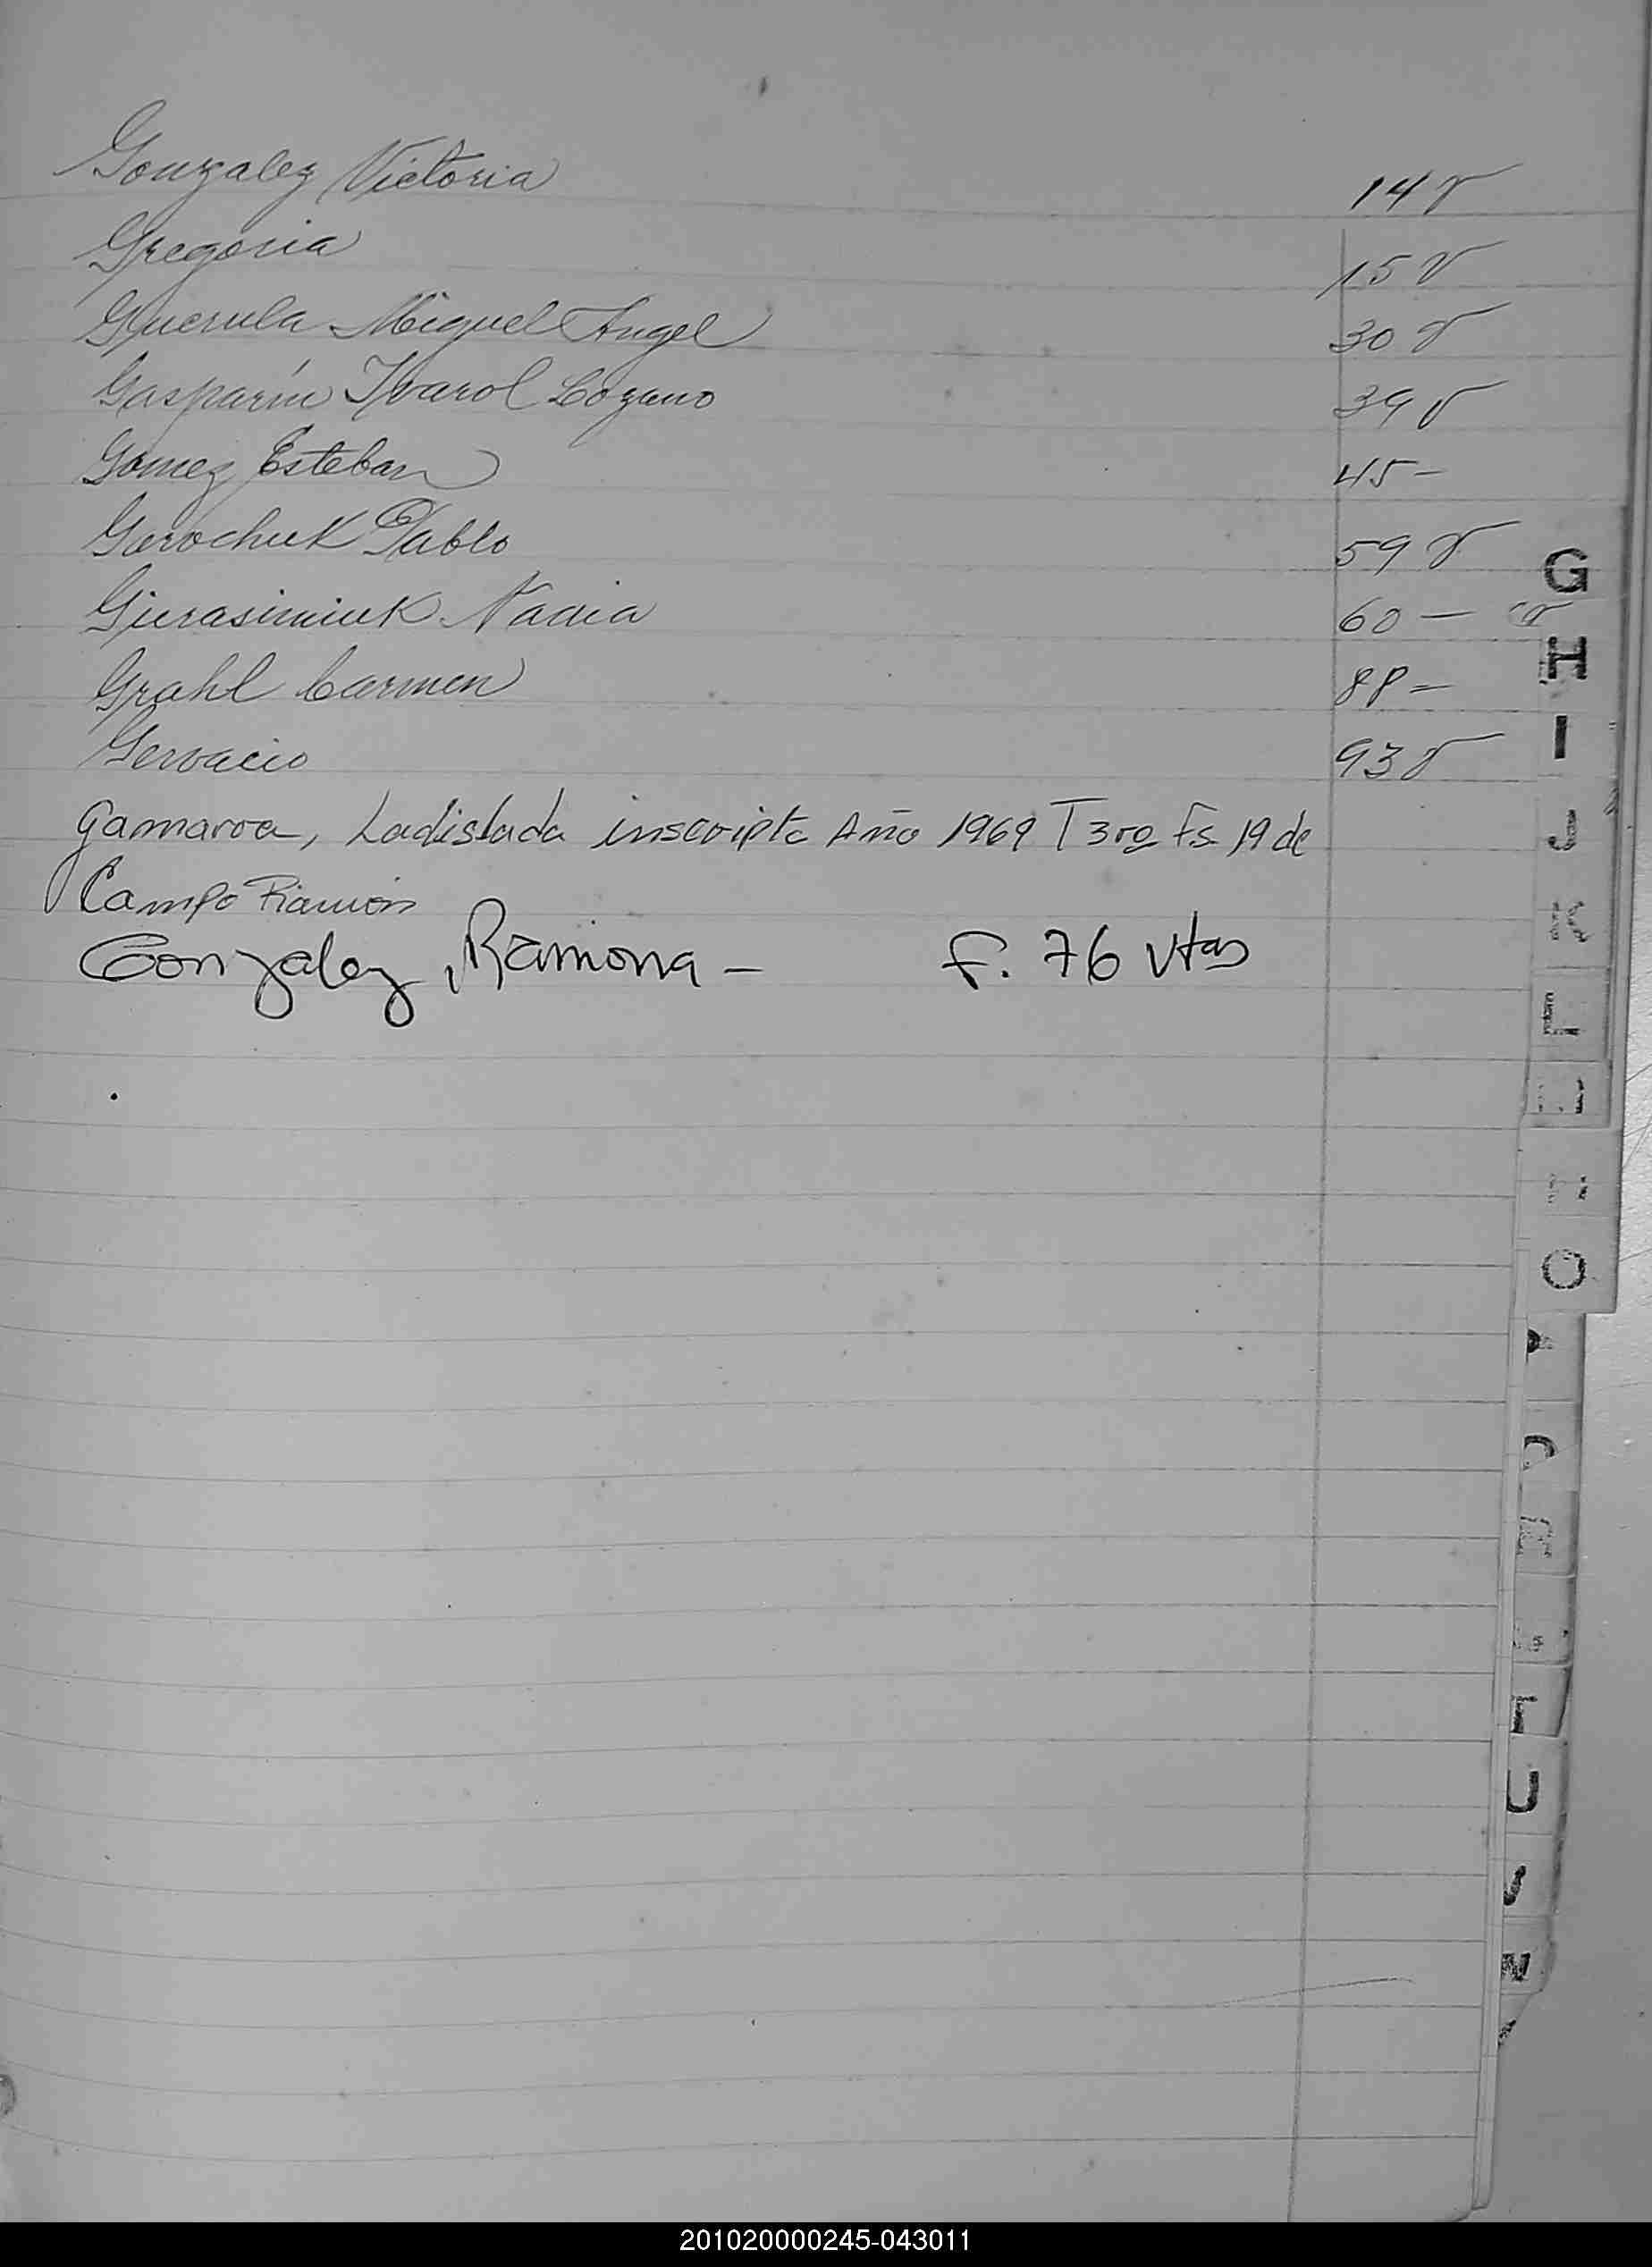 Gonzalez Victoria 14 v
Gregoria 15 v
Guerula Miguel Angel 30 v
Gasparín Ivarol Lozano 39 v
Gomez Esteban 45 –
Garochuk Pablo 59 v
Giurasimiuk Nadia 60 –
Grahl Carmen 88 –
Gervacio 93 v
Gamarra, Ladislada inscripta Año 1969 T 3ro Fs 19 de
Campo Ramón
Gonzalez, Ramona – F. 76 vtas
G
H
I
J
K
L
O
U
V
201020000245-043011